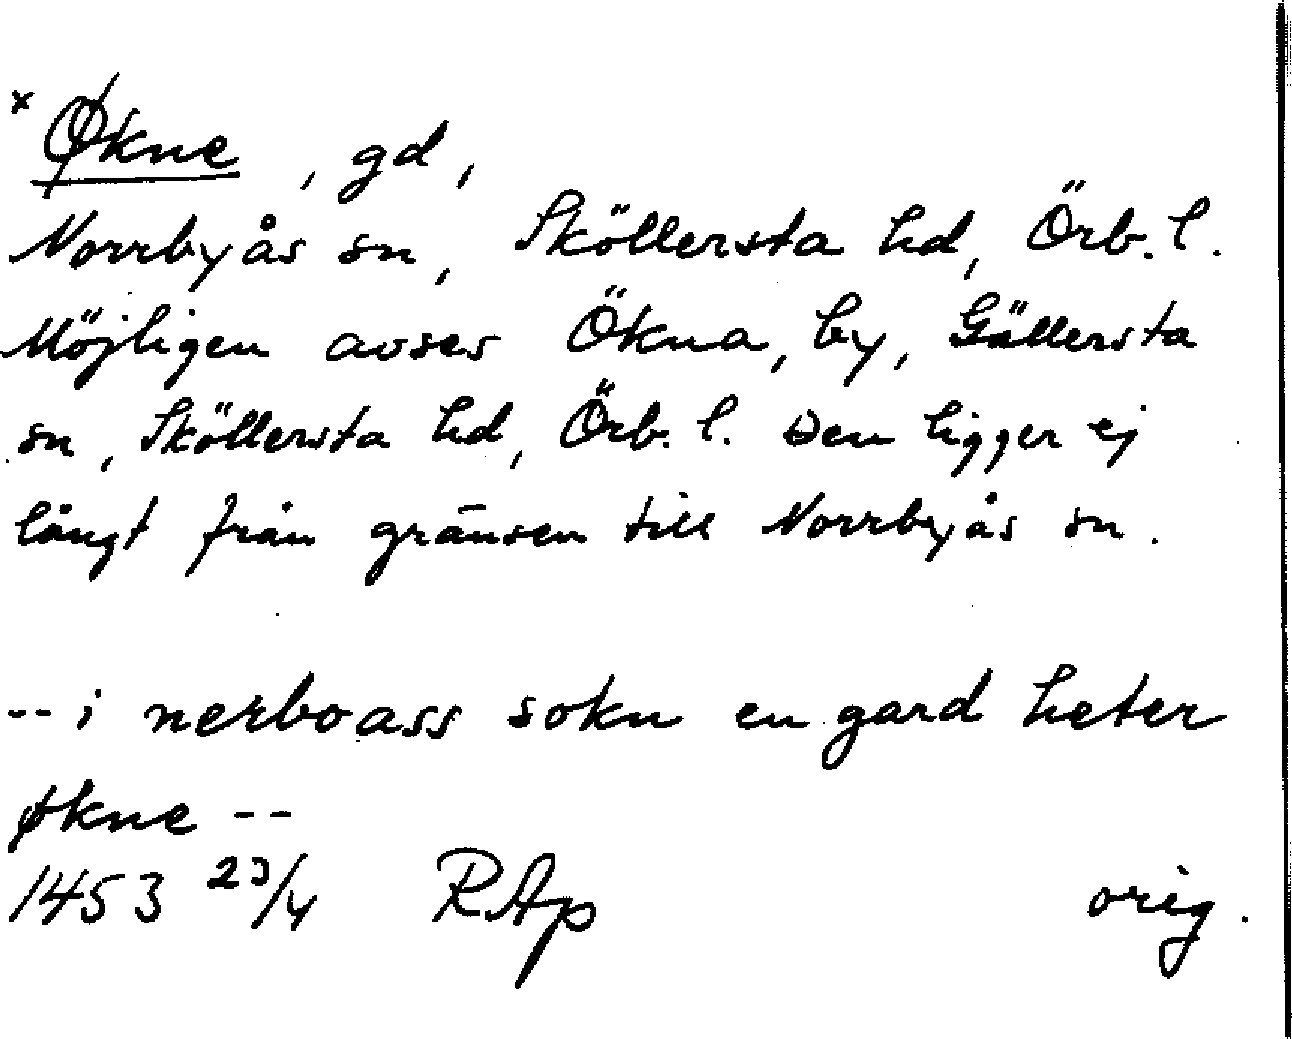 × Økne, gd,
Norrbyås sn, Sköllersta hd, Örb. l.
Möjligen avses Ökna, by, Gällersta
sn, Sköllersta hd, Örb. l. Den ligger ej
långt från gränsen till Norrbyås sn.
-- i nerboass sokn en gard heter
økne --
1453 23/4 RAp orig.